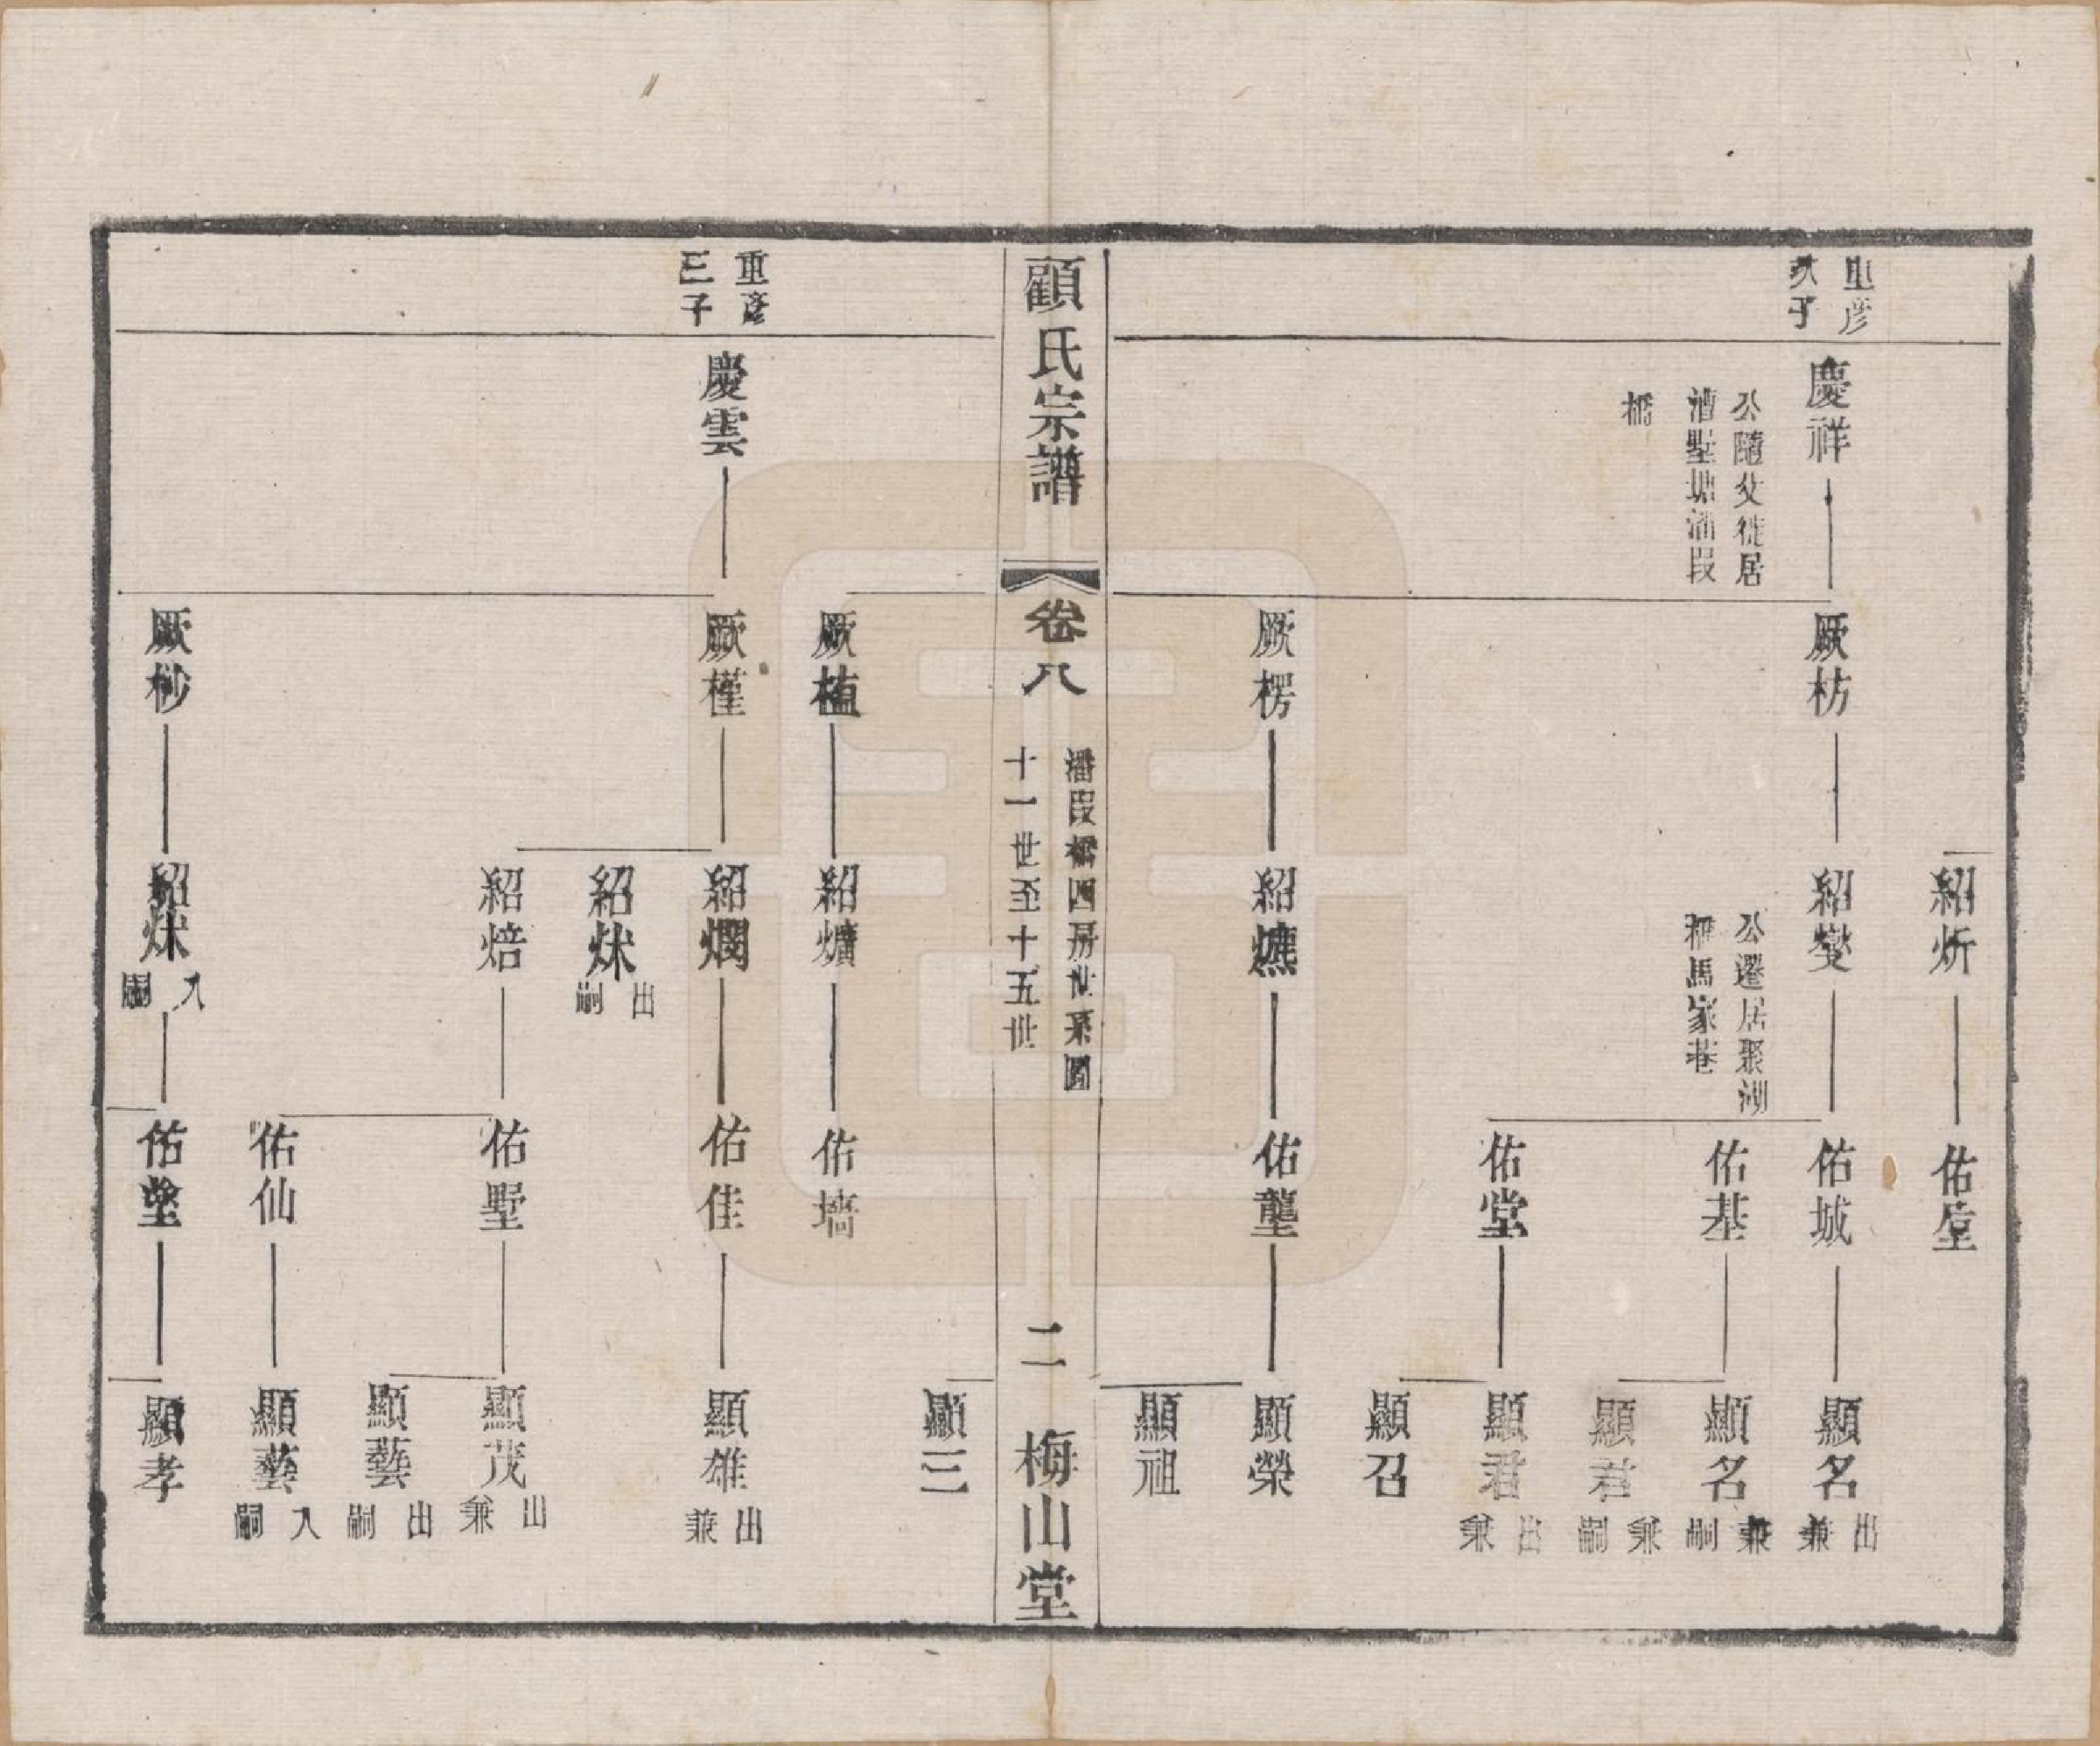 紹炘
佑垕
重彦
次子
慶祥
公隨父徙居
漕墅塘潘段
橋
厥枋
紹燮
公遷居聚湖
橋馬家巷
佑城
顯名
出兼
佑基
顯名
兼嗣
顯君
兼嗣
佑堂
顯君
出兼
顯召
厥楞
紹燋
佑壟
顯榮
顯祖
顧氏宗譜
卷八
潘段橋四房世系圖
十一世至十五世
二
梅山堂
顯三
厥植
紹爌
佑墻
重彦
三子
慶雲
厥槿
紹燗
佑佳
顯雄
出兼
紹炑
出嗣
紹焙
佑墅
顯茂
出兼
顯藝
出嗣
佑仙
顯藝
入嗣
厥杪
紹炑
入嗣
佑塋
顯孝